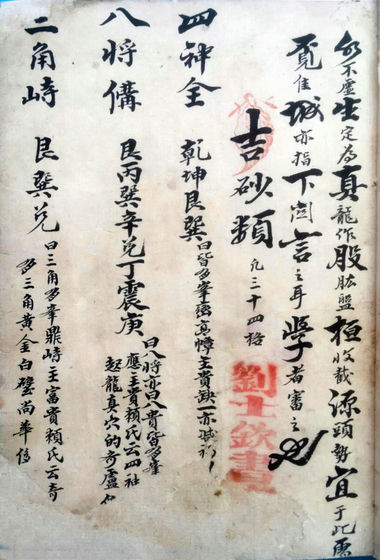 必不虛生定為真龍作股肱盟桓收截源頭勢宜于此處
覓佳城亦指下崗言之耳學者審之
吉砂類 凡三十四格
劉士欽書
四神全 乾坤艮巽 曰皆多峯高主貴缺一亦減
八將備 艮丙巽辛兌丁震庚 曰八將亦曰八貴皆多峯
應主貴賴氏云四社
起龍真穴的奇
二角峙 艮巽兌 曰三角多峯鼎峙主富貴賴氏云奇
多三角黃金白璧尚華侈